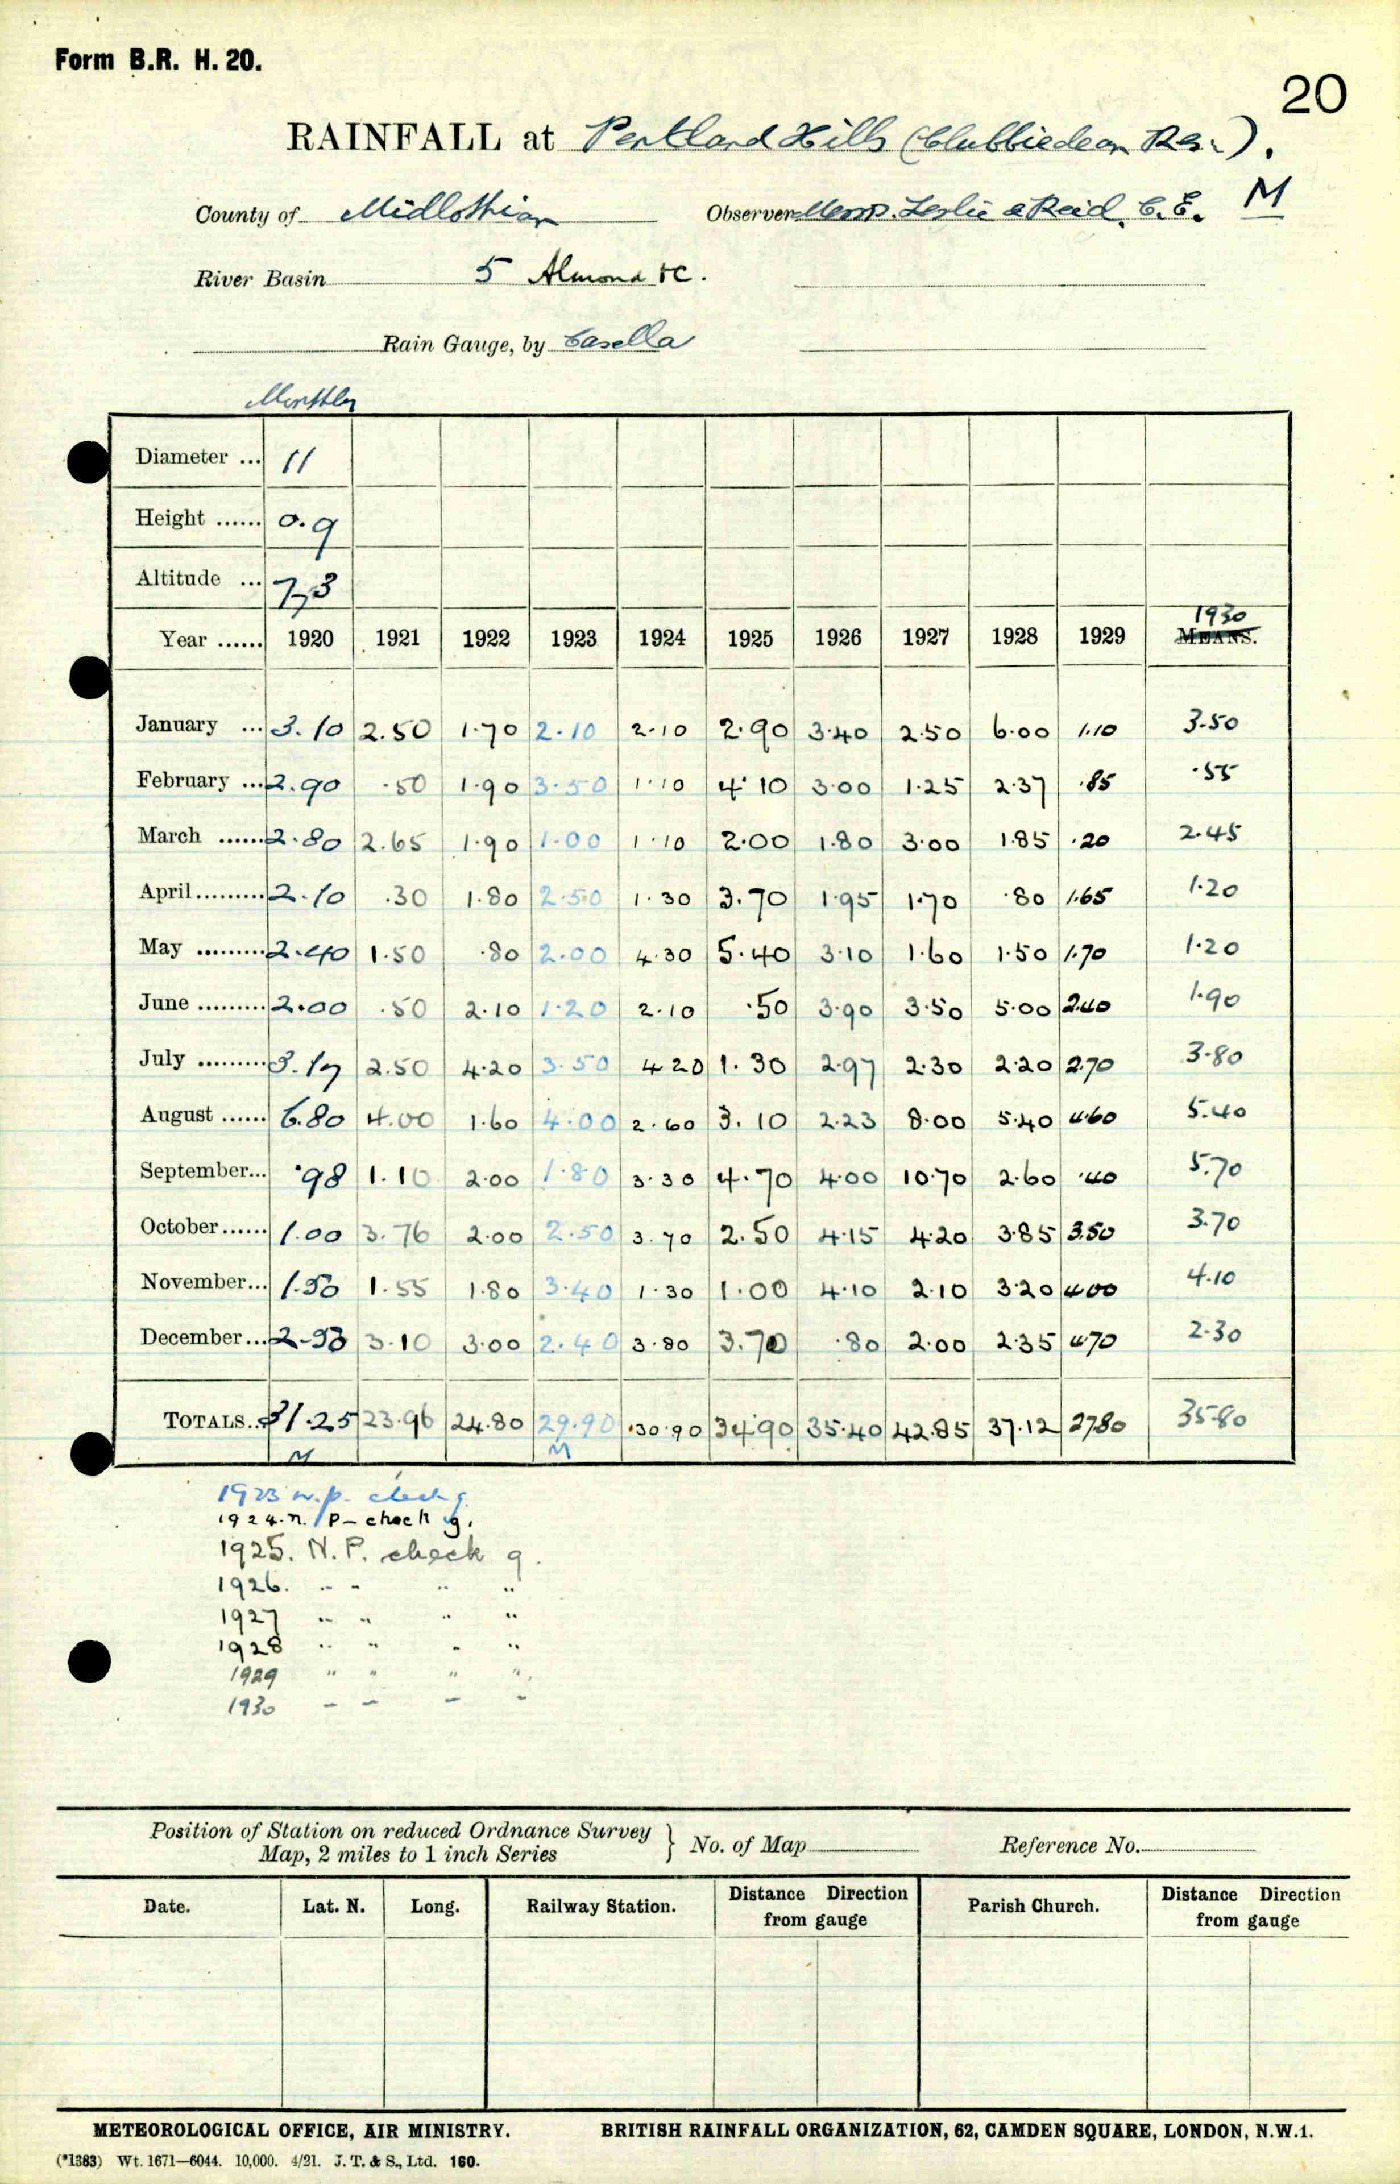 Form B.R. H. 20.
20
RAINFALL at Pentland Hills (Clubbiedean Res.).
County of Midlothian Observer Messrs. Leslie & Reid, C.E. M
River Basin 5 Almond &c.
Rain Gauge, by Casella
Monthly
Diameter ... 11
Height ...... 0.9
Altitude ...
Year ...... 1920 1921 1922 1923 1924 1925 1926 1927 1928 1929 1930 MEANS.
January ... 3.10 2.50 1.70 2.10 2.10 2.90 3.40 2.50 6.00 1.10 3.50
February ... 2.90 .50 1.90 3.50 1.10 4.10 3.00 1.25 2.37 .85 .55
March ...... 2.80 2.65 1.90 1.00 1.10 2.00 1.80 3.00 1.85 .20 2.45
April ......... 2.10 .30 1.80 2.50 1.30 3.70 1.95 1.70 .80 1.65 1.20
May ......... 2.40 1.50 .80 2.00 4.30 5.40 3.10 1.60 1.50 1.70 1.20
June ......... 2.00 .50 2.10 1.20 2.10 .50 3.90 3.50 5.00 2.40 1.90
July ......... 3.17 2.50 4.20 3.50 4.20 1.30 2.97 2.30 2.20 2.70 3.80
August ...... 6.80 4.00 1.60 4.00 2.60 3.10 2.23 8.00 5.40 4.60 5.40
September... .98 1.10 2.00 1.80 3.30 4.70 4.00 10.70 2.60 .40 5.70
October...... 1.00 3.76 2.00 2.50 3.70 2.50 4.15 4.20 3.85 3.50 3.70
November... 1.50 1.55 1.80 3.40 1.30 1.00 4.10 2.10 3.20 4.00 4.10
December... 2.50 3.10 3.00 2.40 3.80 3.70 .80 2.00 2.35 4.70 2.30
TOTALS.. 31.25 23.96 24.80 29.90 30.90 34.90 35.40 42.85 37.12 27.80 35.80
M M
1923 n.p. check g.
1924. n. p - check g.
1925. N. P. check g.
1926. " " " "
1927 " " " "
1928 " " " "
1929 " " " "
1930 " " " "
Position of Station on reduced Ordnance Survey
Map, 2 miles to 1 inch Series } No. of Map Reference No.
Date. Lat. N. Long. Railway Station. Distance Direction from gauge Parish Church. Distance Direction from gauge
METEOROLOGICAL OFFICE, AIR MINISTRY. BRITISH RAINFALL ORGANIZATION, 62, CAMDEN SQUARE, LONDON, N.W.1.
(*1383) Wt. 1671—6044. 10,000. 4/21. J. T. & S., Ltd. 160.